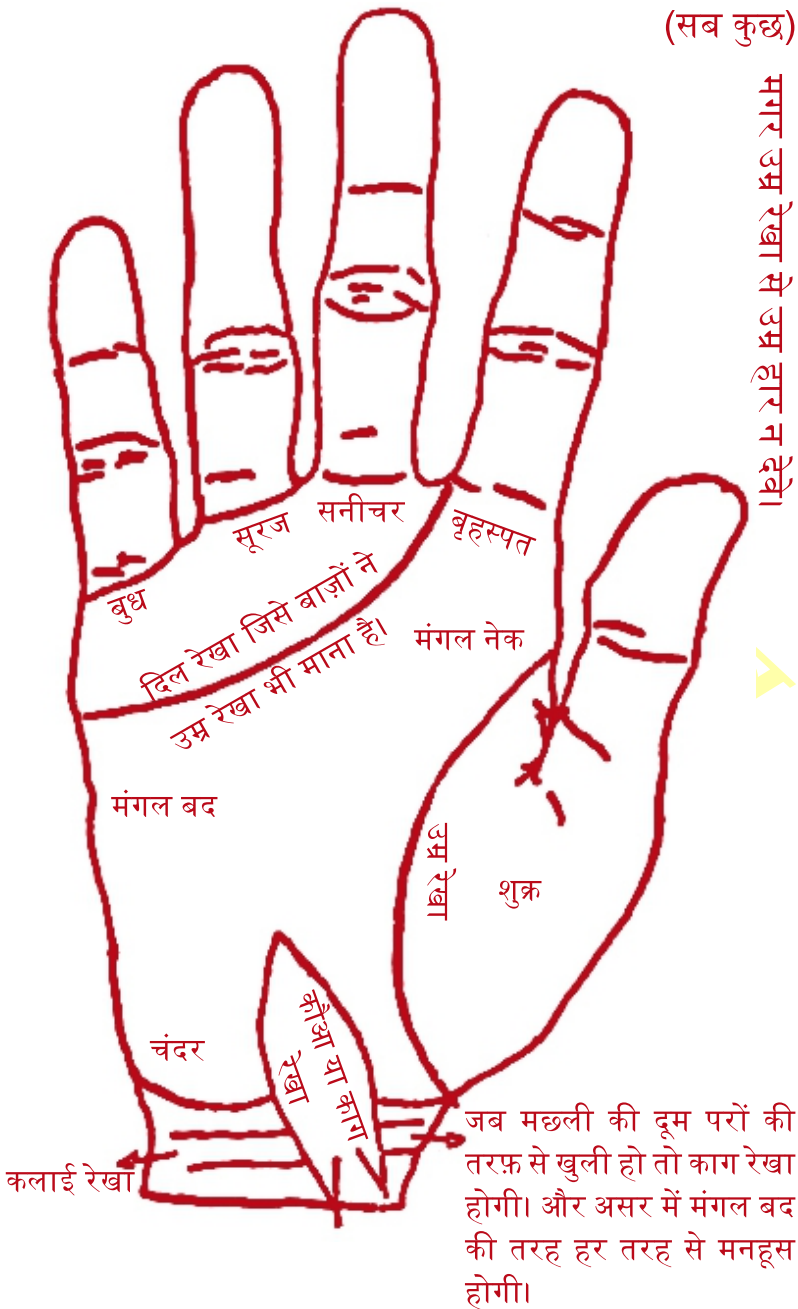 (सब कुछ)
मगर उम्र रेखा से उम्र हार न देवे।
सूरज
सनीचर
बृहस्पत
बुध
दिल रेखा जिसे बाज़ों ने
उम्र रेखा भी माना है।
मंगल नेक
मंगल बद
उम्र रेखा
शुक्र
चंदर
कौआ या काग
रेखा
कलाई रेखा
जब मछली की दूम परों की
तरफ़ से खुली हो तो काग रेखा
होगी। और असर में मंगल बद
की तरह हर तरह से मनहूस
होगी।